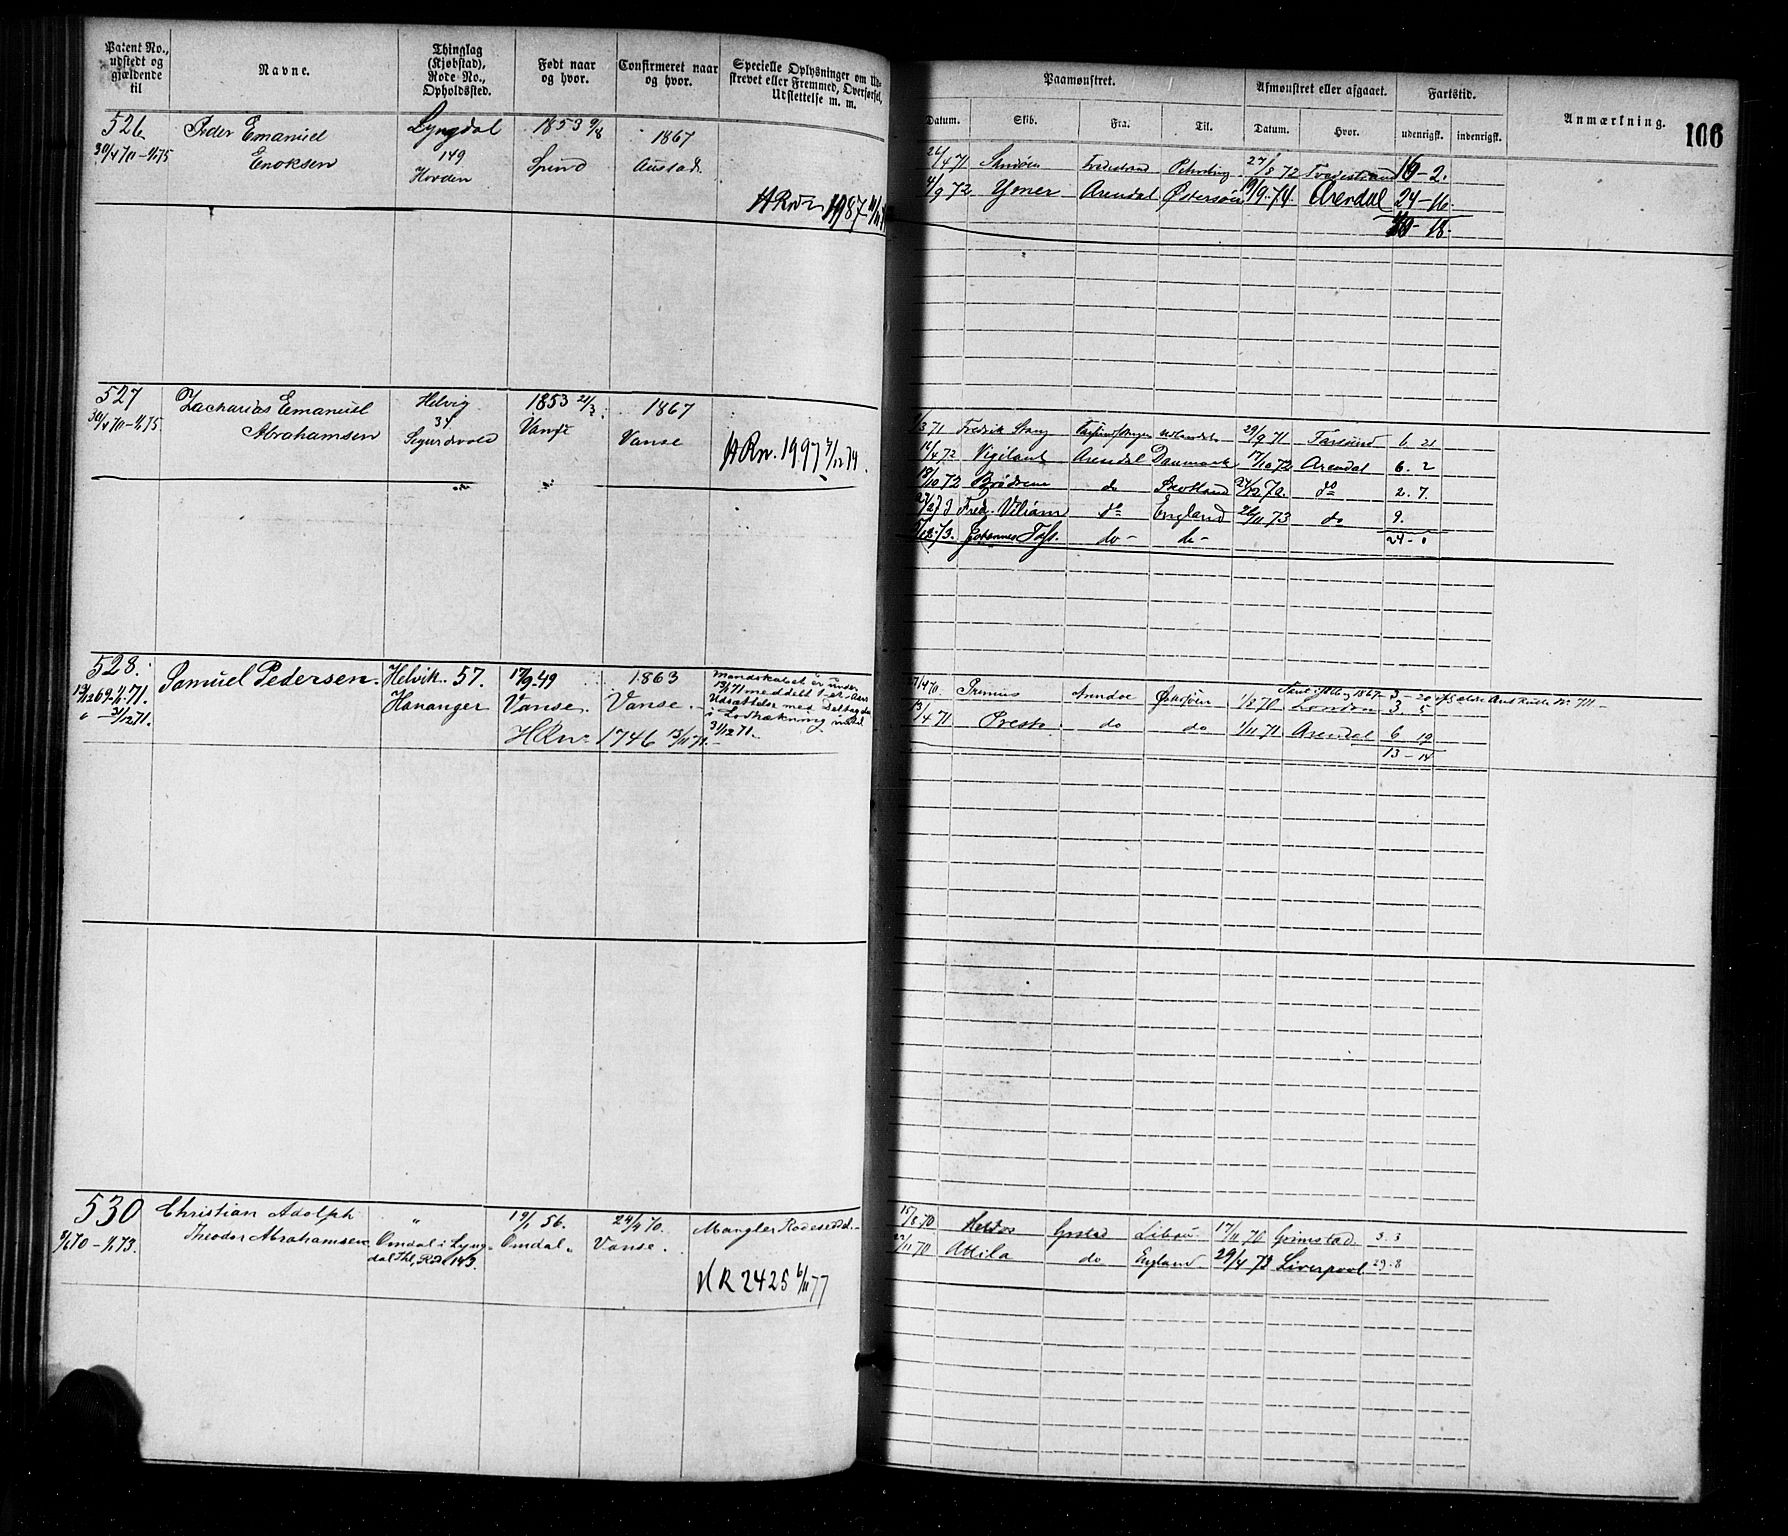 Patent No., udstedt og gjældende til
Navne.
Thinglag (Kjøbstad), Rode No., Opholdssted.
Født naar og hvor.
Confirmeret naar og hvor.
Specielle Oplysninger om Udskrevet eller Fremmed, Overførsel, Udslettelse m. m.
Paamønstret.
Afmønstret eller afgaaet.
Fartstid.
Anmærkning.
106
Datum.
Skib.
Fra.
Til.
Datum.
Hvor.
udenrigsk.
indenrigsk.
526.
Peder Emanuel
Lyngdal
1853 9/8
1867
30/4 70 – 1/1 75
Enoksen
149
Spind
Austad.
Horden
26/4 71
27/8 72 Tvedestrand 16 – 2.
4/9 72 Ymer Arendal Østersøen 19/9 74. Arendal 24 – 16
18.
527
Zacharias Emanuel
Helvig
1853 21/3.
1867
30/4 70 – 1/1 75
Abrahamsen
34
Vanse
Vanse
Sigurdsvold
HRn. 1997 7/12 74.
3 71 Fredrik Stang 29/9 71. Farsund 6. 21
16/4 72 Vigilant Arendal Danmark 17/10 72 Arendal 6. 2
18/10 72 Brødrene do Skotland 24/12 72. do 2. 7.
Fred. Viliam do England 26/11 73 do 9.
12 73. Johannes do – do – 24 –
528.
Samuel Pedersen.
Helvik. 57.
17/9 49
1863
Hananger
Vanse.
Vanse.
13/12 69 – 1/1 71.
" – 31/12 71.
Mandskabet er under
13/1 71 meddelt 1 et Aars
Udsættelse med Deltagelse
i Lodtrækning indtil
31/12 71. –
HRn. 1746 13/11 71. –
4 70. Primus Arendal Østersøen 1/8 70 London 3 5
13/4 71 do do 1/11 71 Arendal 6 19
13 – 14
530
Christian Adolph
"
19/1 56.
24/4 70.
Mangler Rodeseddel. –
70 – 1/1 73.
Theodor Abrahamsen
Omdal i Lyng-
Omdal.
Vanse.
dal Thl, Rode 143.
HR 2425 6/11 77
15/8 70 Libau 17/11 70 Grimstad. 3. 3
22/11 70 Attila do England 29/4 73 Liverpool 29 – 8